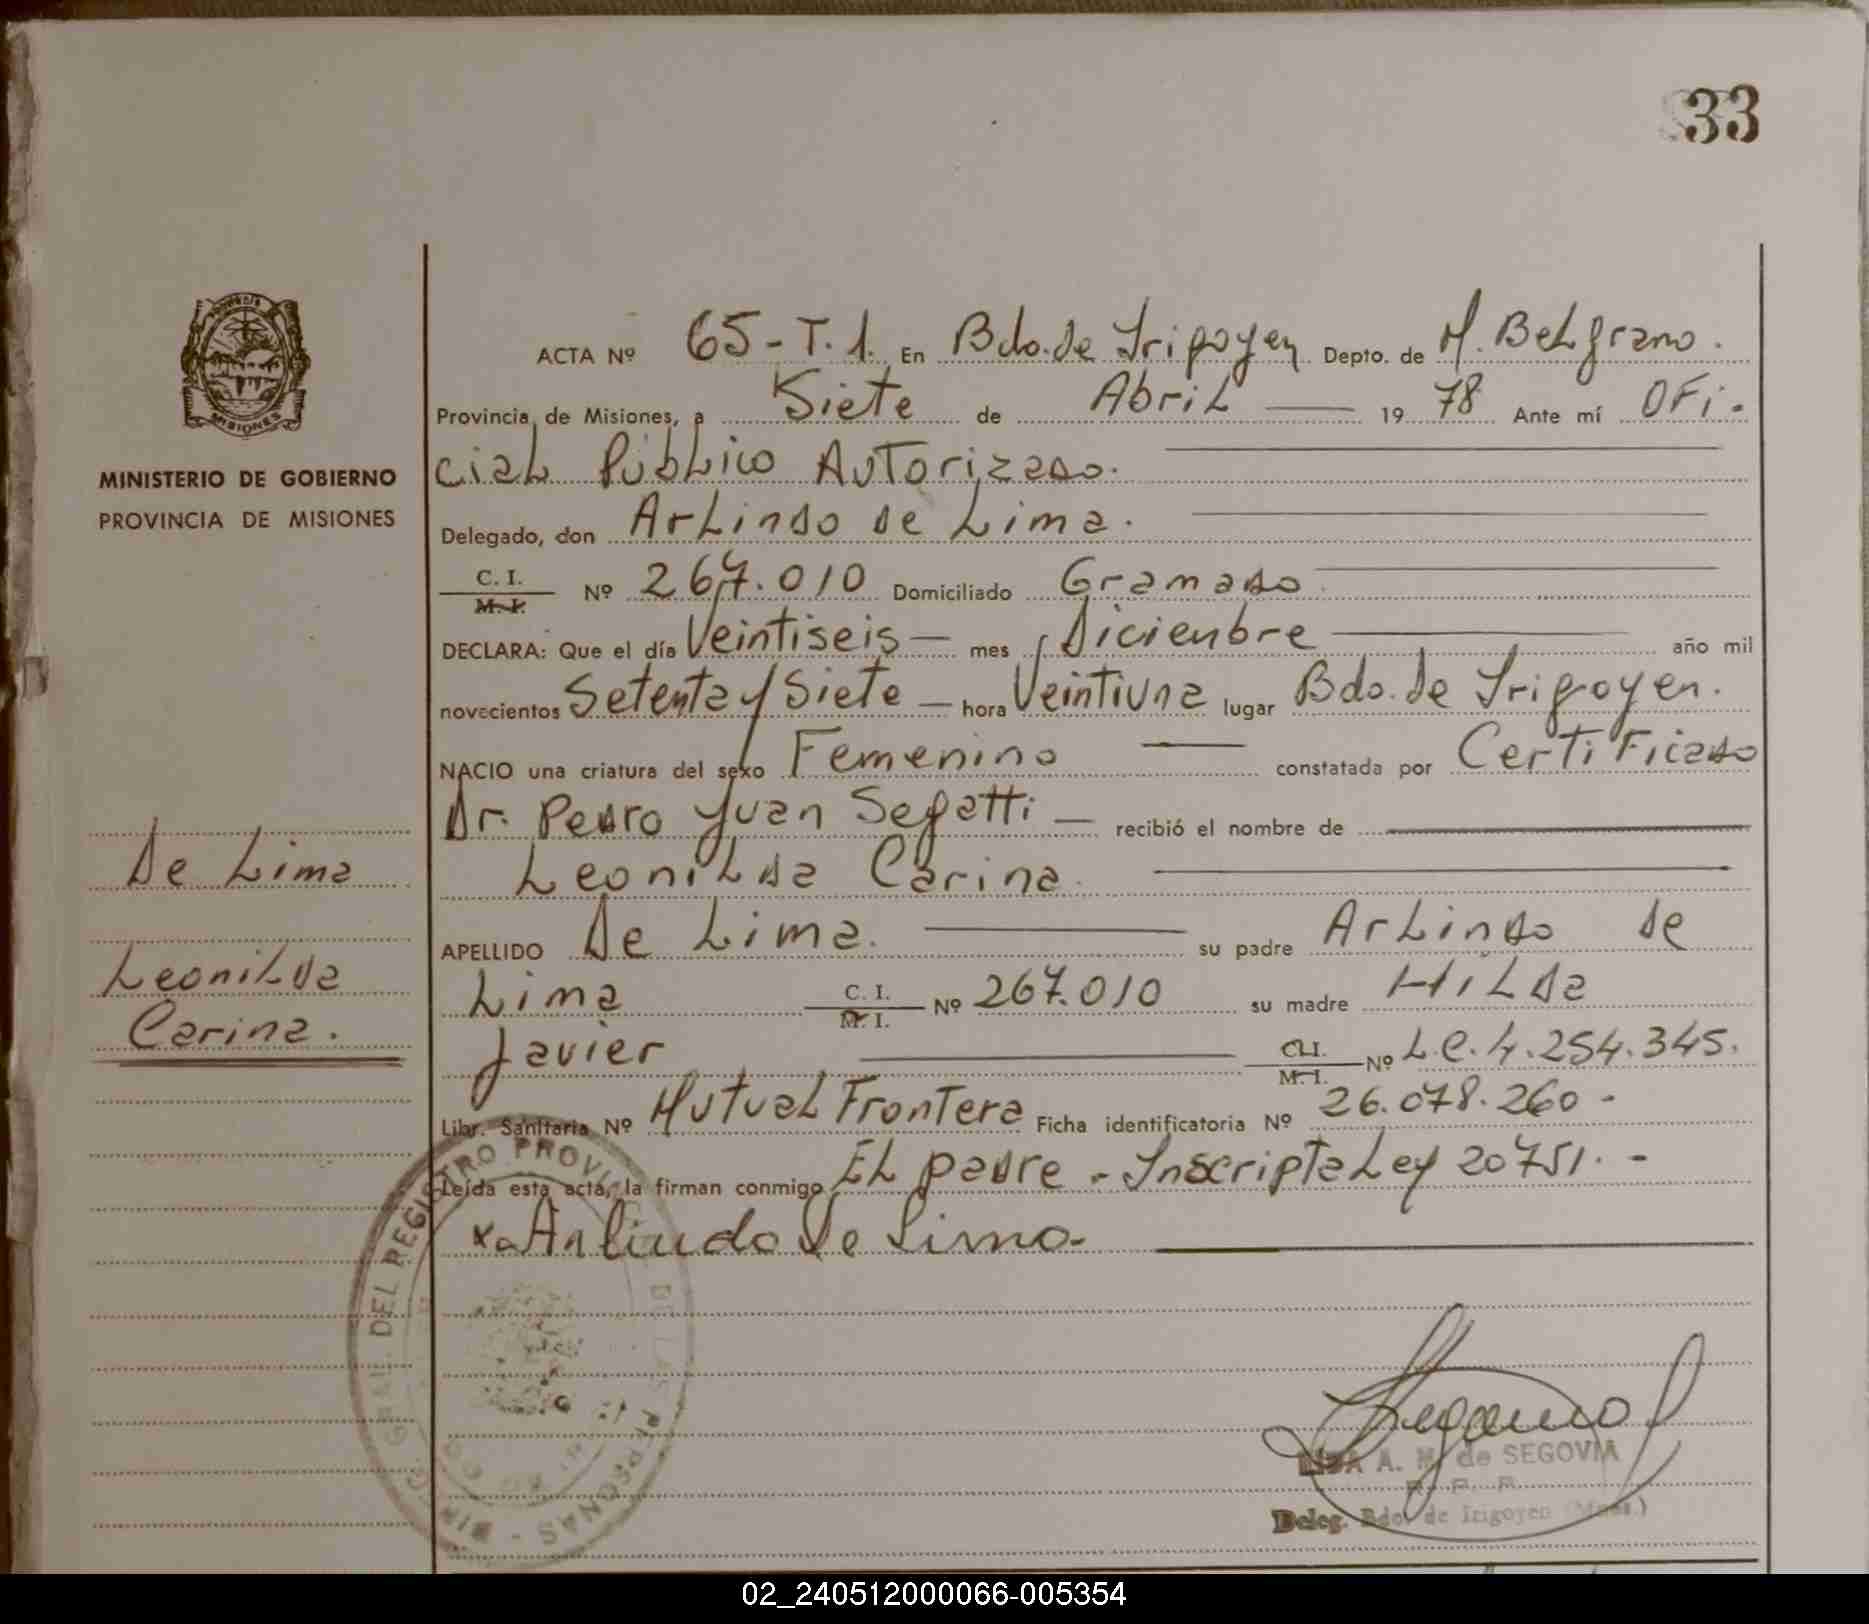 33
MISIONES
MINISTERIO DE GOBIERNO
PROVINCIA DE MISIONES
De Lima
Leonilda
Carina.
ACTA Nº 65-T.1. En Bdo. de Irigoyen Depto. de M. Belgrano.
Provincia de Misiones, a Siete de Abril — 19 78 Ante mí Ofi-
cial Público Autorizado.
Delegado, don Arlindo de Lima.
C. I. / M. I. Nº 267.010 Domiciliado Gramado
DECLARA: Que el día Veintiseis — mes Diciembre — año mil
novecientos Setenta y Siete — hora Veintiuna lugar Bdo. de Irigoyen.
NACIO una criatura del sexo Femenino — constatada por Certificado
Dr. Pedro Juan Segatti — recibió el nombre de
Leonilda Carina
APELLIDO De Lima. — su padre Arlindo de
Lima C. I. / M. I. Nº 267.010 su madre Hilda
Javier — C.I. / M. I. Nº L.C. 4.254.345.
Libr. Sanitaria Nº Mutual Frontera Ficha identificatoria Nº 26.078.260 -
Leída esta acta, la firman conmigo El padre - Inscripta Ley 20751. -
Arlindo De Lima-
DEL REGISTRO PROVI DE LAS PERSONAS
A. M. de SEGOVIA
Deleg. Bdo. de Irigoyen (Mnes.)
02_240512000066-005354